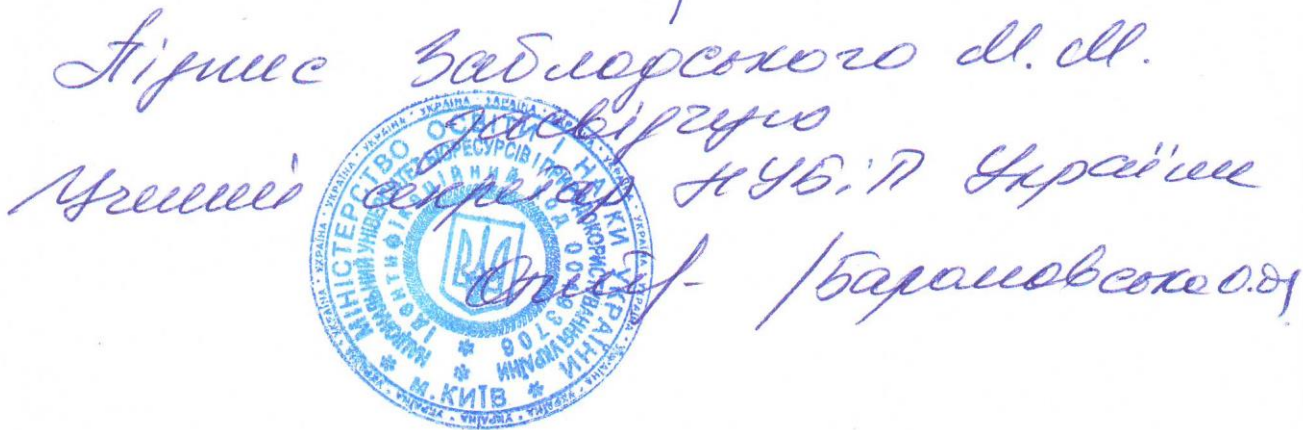 Підпис Заблодського М.М.
засвідчую
Учений секретар НУБіП України
/Барановська О.Д
УКРАЇНА · УКРАЇНА · УКРАЇНА · УКРАЇНА
МІНІСТЕРСТВО ОСВІТИ І НАУКИ УКРАЇНИ
НАЦІОНАЛЬНИЙ УНІВЕРСИТЕТ БІОРЕСУРСІВ І ПРИРОДОКОРИСТУВАННЯ УКРАЇНИ
Ідентифікаційний код 00493706
М.КИЇВ